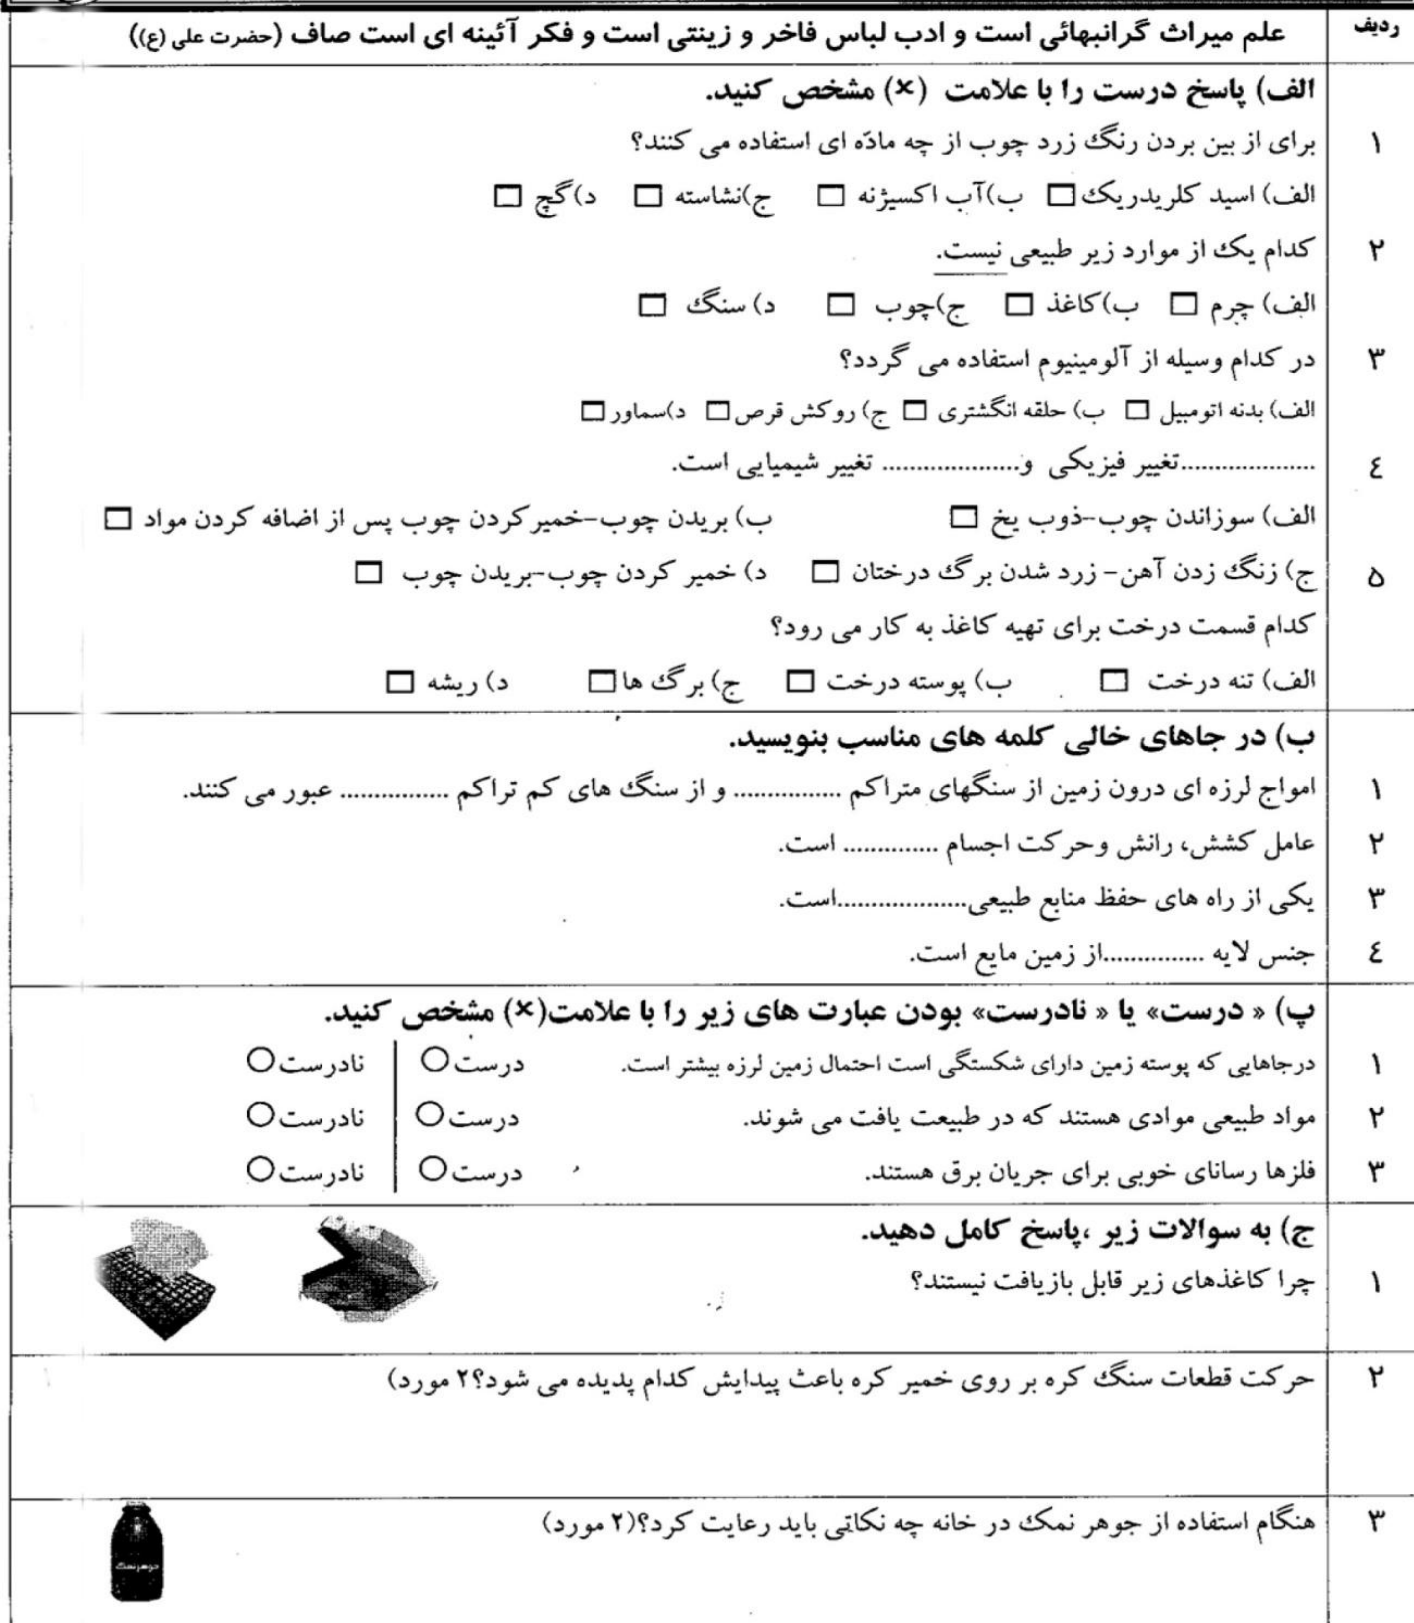 ردیف
علم میراث گرانبهائی است و ادب لباس فاخر و زینتی است و فکر آئینه ای است صاف (حضرت علی (ع))
الف) پاسخ درست را با علامت (×) مشخص کنید.
۱ برای از بین بردن رنگ زرد چوب از چه مادّه ای استفاده می کنند؟
الف) اسید کلریدریک □ ب)آب اکسیژنه □ ج)نشاسته □ د)گچ □
۲ کدام یک از موارد زیر طبیعی نیست.
الف) چرم □ ب)کاغذ □ ج)چوب □ د) سنگ □
۳ در کدام وسیله از آلومینیوم استفاده می گردد؟
الف) بدنه اتومبیل □ ب) حلقه انگشتری □ ج) روکش قرص □ د)سماور □
۴ ....................تغییر فیزیکی و.................... تغییر شیمیایی است.
الف) سوزاندن چوب-ذوب یخ □ ب) بریدن چوب-خمیرکردن چوب پس از اضافه کردن مواد □
۵ ج) زنگ زدن آهن- زرد شدن برگ درختان □ د) خمیر کردن چوب-بریدن چوب □
کدام قسمت درخت برای تهیه کاغذ به کار می رود؟
الف) تنه درخت □ ب) پوسته درخت □ ج) برگ ها □ د) ریشه □
ب) در جاهای خالی کلمه های مناسب بنویسید.
۱ امواج لرزه ای درون زمین از سنگهای متراکم ................ و از سنگ های کم تراکم ................ عبور می کنند.
۲ عامل کشش، رانش وحرکت اجسام .............. است.
۳ یکی از راه های حفظ منابع طبیعی...................است.
۴ جنس لایه ...............از زمین مایع است.
پ) « درست» یا « نادرست» بودن عبارت های زیر را با علامت(×) مشخص کنید.
۱ درجاهایی که پوسته زمین دارای شکستگی است احتمال زمین لرزه بیشتر است. درست○ نادرست○
۲ مواد طبیعی موادی هستند که در طبیعت یافت می شوند. درست○ نادرست○
۳ فلزها رسانای خوبی برای جریان برق هستند. درست○ نادرست○
ج) به سوالات زیر ،پاسخ کامل دهید.
۱ چرا کاغذهای زیر قابل بازیافت نیستند؟
۲ حرکت قطعات سنگ کره بر روی خمیر کره باعث پیدایش کدام پدیده می شود؟۲ مورد)
۳ هنگام استفاده از جوهر نمک در خانه چه نکاتی باید رعایت کرد؟(۲ مورد)
جوهر نمک